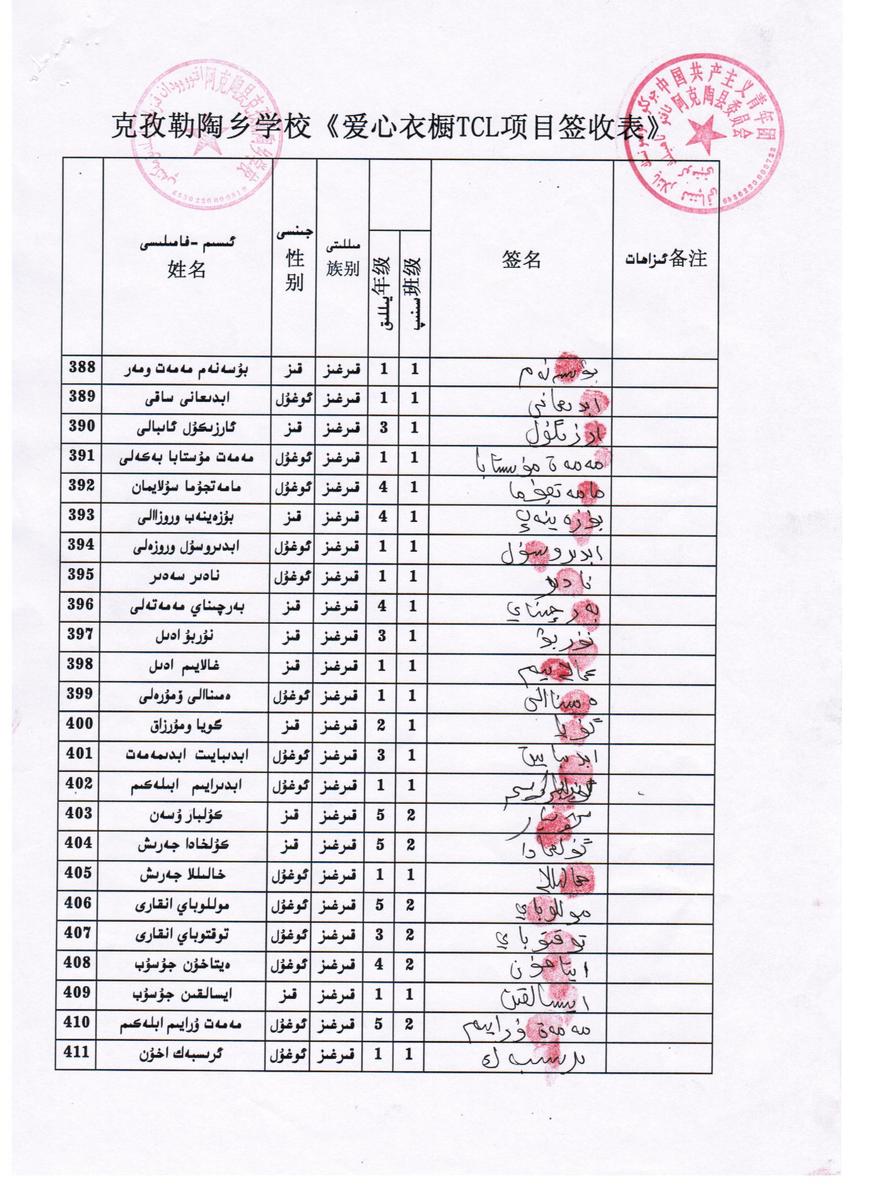 克孜勒陶乡学校《爱心衣橱TCL项目签收表》
中国共产主义青年团
阿克陶县委员会
ئىسىم -فامىلىسى جىنسى مىللىتى
姓名 性别 族别 يىللىق年级 سىنىپ班级 签名 ئىزاھات备注
388 بۇسەنەم مەمەت ومەر قىز قىرغىز 1 1 بۇسەنەم
389 ابدىعانى ساقى ئوغۇل قىرغىز 1 1 ابدىعانى
390 ئارزىكۇل ئابالى قىز قىرغىز 3 1 ارزىگۇل
391 مەمەت مۇستابا بەكەلى ئوغۇل قىرغىز 1 1 مەمەت مۇستابا
392 مامەتجۇما سۇلايمان ئوغۇل قىرغىز 4 1
393 بۇزەينەب وروزاالى قىز قىرغىز 4 1 بۇزەينەپ
394 ابدىروسۇل وروزەلى ئوغۇل قىرغىز 1 1 ابدىروسۇل
395 نادىر سەدىر ئوغۇل قىرغىز 1 1 نادىر
396 بەرچىناي مەمەتەلى قىز قىرغىز 4 1 بەرچىناي
397 نۇربۇ ادىل قىز قىرغىز 3 1
398 غالايىم ادىل قىز قىرغىز 1 1
399 ەسىناالى ۋمۇرەلى ئوغۇل قىرغىز 1 1
400 گويا ومۇرزاق قىز قىرغىز 2 1
401 ابدىبايىت ابدىمەمەت ئوغۇل قىرغىز 3 1
402 ابدىرايىم ابىلەكىم ئوغۇل قىرغىز 1 1
403 كۇلبار ۇسەن قىز قىرغىز 5 2
404 كۇلخادا جەرىش قىز قىرغىز 5 2
405 خالىللا جەرىش ئوغۇل قىرغىز 1 1
406 موللوباي انقارى ئوغۇل قىرغىز 5 2 موللوباي
407 توقتوباي انقارى ئوغۇل قىرغىز 3 2 توقتوباي
408 ەيتاخۇن جۇسۇب ئوغۇل قىرغىز 4 2
409 ايسالقىن جۇسۇب قىز قىرغىز 1 1 ايسالقىن
410 مەمەت ۇرايىم ابىلەكىم ئوغۇل قىرغىز 5 2 مەمەت ۇرايىم
411 ئرىسبەك اخۇن ئوغۇل قىرغىز 1 1